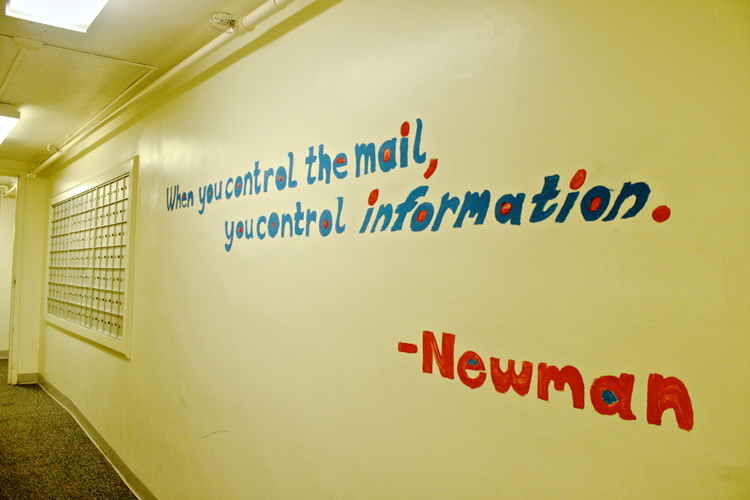 When you control the mail,
you control information.
-Newman